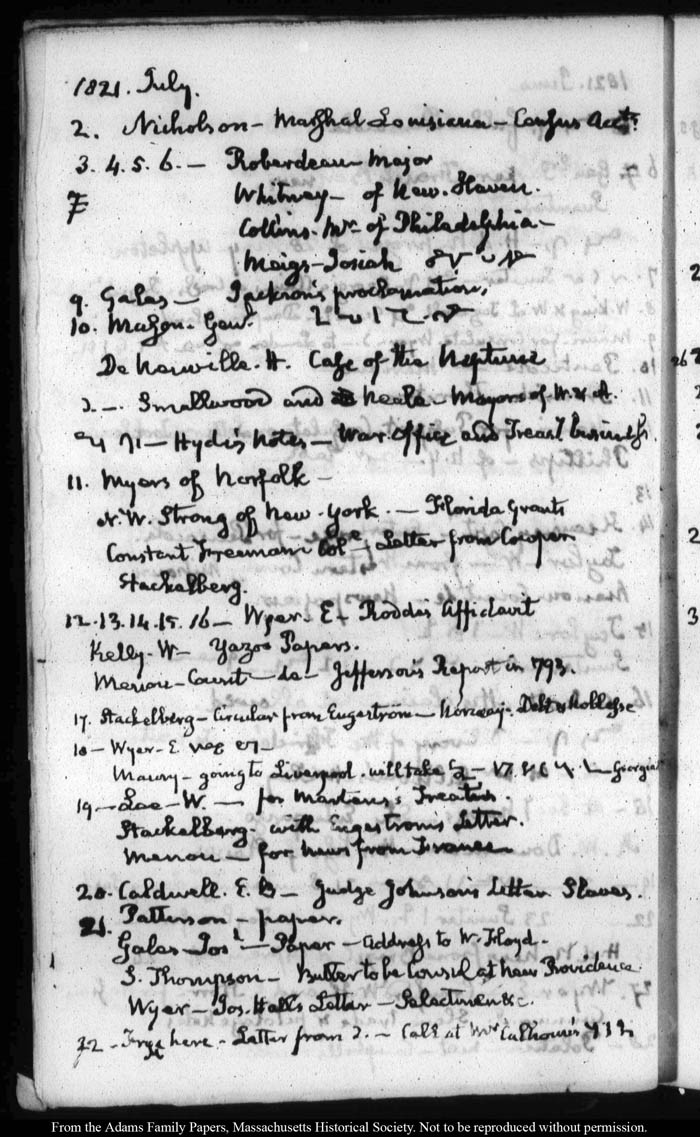 1821. July.
2. Nicholson - Marshal Louisiana - Census Accts.
3. 4. 5. 6. - Roberdeau - Major
7 Whitney - of New-Haven.
Collins. Mr. of Philadelphia -
Meigs - Josiah
9. Gales - Jackson's proclamation.
10. Mason - Genl.
De Neuville. H. Case of the Neptune
Smallwood and Neale - Mayors of W. & A.
Hyde's Notes - War. Office and Treas.y business.
11. Myers of Norfolk -
N. W. Strong of New-York. - Florida Grants
Constant Freeman Letter from Cooper
Stackelberg.
12. 13. 14. 15. 16 - Wyer. E - Roddis Affidavit
Kelly. W - Yazoo Papers.
Menou - Count - do - Jefferson's Report in 793.
17. Stackelberg - Circular from Engeström - Norway.
18 - Wyer - E.
Maury - going to Liverpool. will take Georgia
19 - Lee - W. - for Martens's Treaties.
Stackelberg - with Engeström's Letter.
Menou - for News from France -
20. Caldwell. E. B - Judge Johnson's Letter Slaves.
21. Patterson - paper.
Gales - Jos. - Paper - Address to W. Floyd -
S. Thompson - to be Consul at New Providence
Wyer - Jos. Hall's Letter - Selectmen &c.
22 - Frye here - Letter from - Call at Mr. Calhoun's
From the Adams Family Papers, Massachusetts Historical Society. Not to be reproduced without permission.